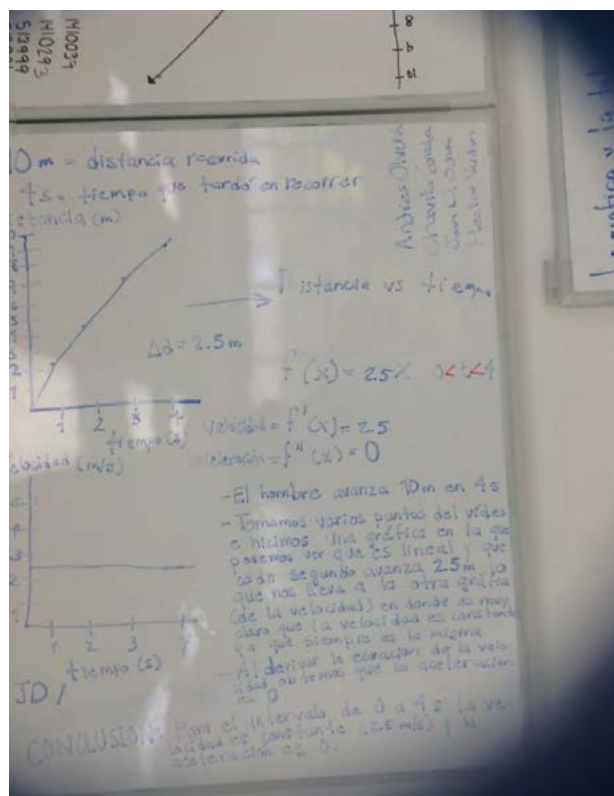 M10039
M10293
8
9
10
10 m = distancia recorrida
4s = tiempo que tardó en recorrer
distancia (m)
Andres Olvera
Distancia vs tiempo
Δd = 2.5m
f(x) = 2.5x 0<t<4
2
1
1 2 3 4
tiempo (s)
velocidad = f'(x) = 2.5
aceleración = f''(x) = 0
velocidad (m/s)
4
3
2
1
1 2 3
tiempo (s)
- El hombre avanza 10m en 4s
- Tomamos varios puntos del video
e hicimos una gráfica en la que
podemos ver que es lineal y que
cada segundo avanza 2.5m lo
que nos lleva a la otra gráfica
(de la velocidad) en donde es muy
claro que la velocidad es constante
ya que siempre es la misma
- Al derivar la ecuación de la velo-
cidad obtemos que la aceleración
es 0
CONCLUSION: Para el intervalo de 0 a 4s la ve-
locidad es constante (2.5 m/s) y la
aceleración es 0.